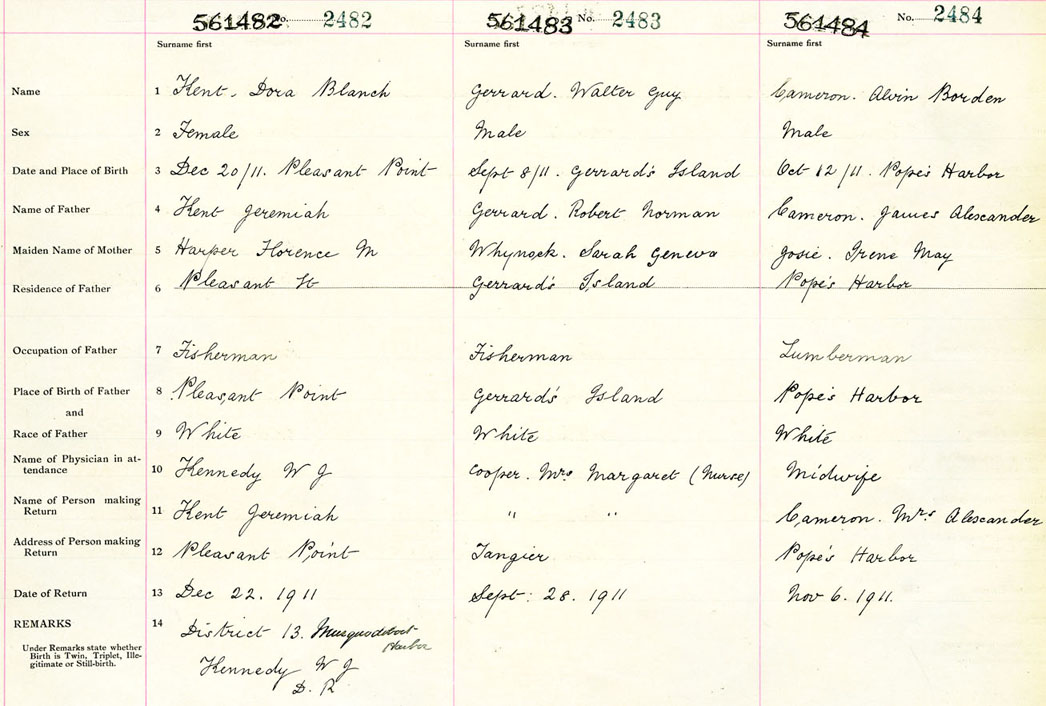 561482 No. 2482 561483 No. 2483 561484 No. 2484
Surname first Surname first Surname first
Name 1 Kent. Dora Blanch Gerrard. Walter Guy Cameron. Alvin Borden
Sex 2 Female Male Male
Date and Place of Birth 3 Dec 20/11. Pleasant Point Sept 8/11. Gerrard's Island Oct 12/11. Pope's Harbor
Name of Father 4 Kent Jeremiah Gerrard. Robert Norman Cameron. James Alescander
Maiden Name of Mother 5 Harper Florence M Whynock. Sarah Geneva Josie. Irene May
Residence of Father 6 Pleasant Gerrard's Island Pope's Harbor
Occupation of Father 7 Fisherman Fisherman Lumberman
Place of Birth of Father 8 Pleasant Point Gerrard's Island Pope's Harbor
and
Race of Father 9 White White White
Name of Physician in at-
tendance 10 Kennedy W J Cooper. Mrs Margaret (Nurse) Midwife
Name of Person making
Return 11 Kent Jeremiah " " Cameron. Mrs Alescander
Address of Person making
Return 12 Pleasant Point Tangier Pope's Harbor
Date of Return 13 Dec 22. 1911 Sept: 28. 1911 Nov 6. 1911.
REMARKS 14 District 13. Musquodoboit
Harbor
Under Remarks state whether
Birth is Twin, Triplet, Ille-
gitimate or Still-birth.
Kennedy W J
D. R